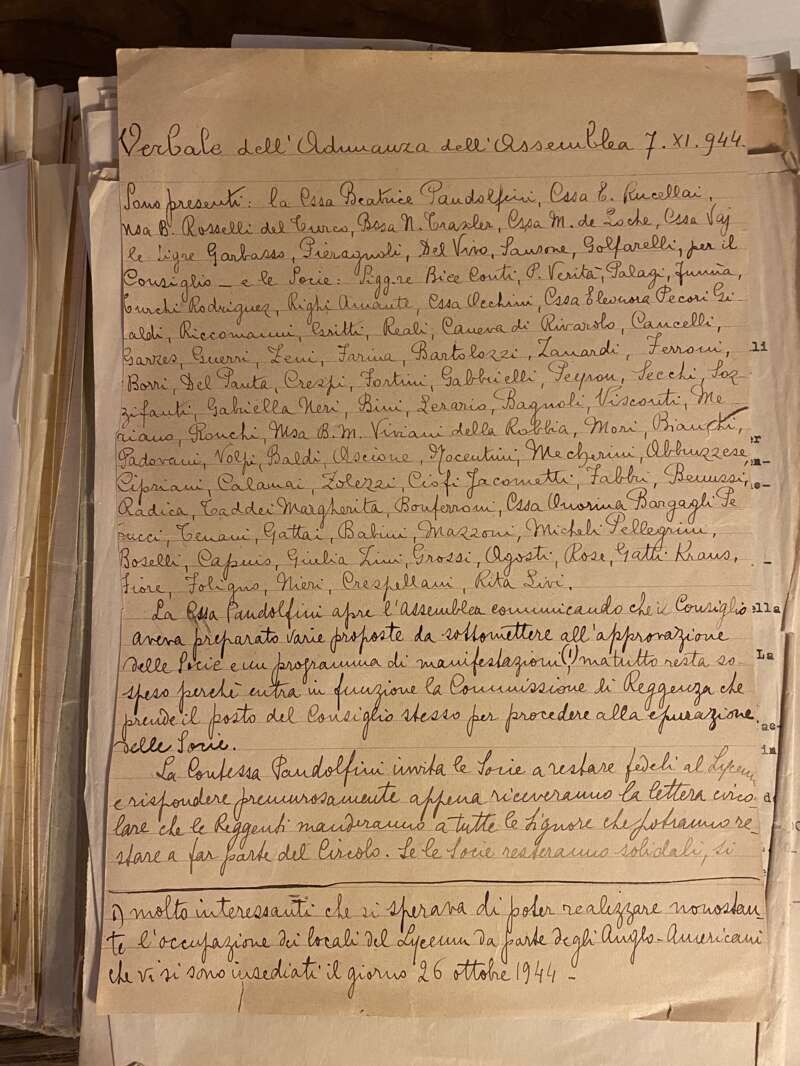 Verbale dell'Adunanza dell'Assemblea 7.XI.944.
Sono presenti: la Cssa Beatrice Pandolfini, Cssa E. Rucellai,
Msa B. Rosselli del Turco, Bssa N. Traxler, Cssa M. de Loche, Cssa Vaj
le Sigre Garbasso, Pieragnoli, Del Vivo, Sansone, Golfarelli, per il
Consiglio – e le Socie: Sigg.re Bice Conti, P. Verità, Palagi,
Turchi Rodriguez, Righi Amante, Cssa Occhini, Cssa Eleonora Pecori Gi
raldi, Riccomanni, Gritti, Reali, Caneva di Rivarolo, Cancelli,
Garzes, Guerri, Zeni, Farina, Bartolozzi, Zanardi, Ferroni,
Borri, Del Panta, Crespi, Fortini, Gabbrielli, Peyron, Secchi, Soz
zifanti, Gabriella Neri, Bini, Lerario, Bagnoli, Visconti, Me
riano, Ronchi, Msa B.M. Viviani della Robbia, Mori, Bianchi,
Padovani, Volpi, Baldi, Ascione, Nocentini, Mecherini, Abbruzzese,
Cipriani, Calamai, Zolezzi, Ciofi Jacometti, Fabbri, Benussi,
Radica, Taddei Margherita, Bonferroni, Cssa Onorina Bargagli Pe
trucci, Tenani, Gattai, Babini, Mazzoni, Micheli Pellegrini,
Boselli, Capuis, Giulia Zini, Grossi, Agosti, Rose, Gatti Kraus,
Fiore, Foligno, Nieri, Crespellani, Rita Livi.
La Cssa Pandolfini apre l'Assemblea comunicando che il Consiglio
aveva preparato varie proposte da sottomettere all'approvazione
delle Socie e un programma di manifestazioni (1) ma tutto resta so
speso perchè entra in funzione la Commissione di Reggenza che
prende il posto del Consiglio stesso per procedere alla epurazione
delle Socie.
La Contessa Pandolfini invita le Socie a restare fedeli al Lyceum
e rispondere premurosamente appena riceveranno la lettera circo-
lare che le Reggenti manderanno a tutte le Signore che potranno re-
stare a far parte del Circolo. Se le Socie resteranno solidali, si
1) molto interessanti che si sperava di poter realizzare nonostan-
te l'occupazione dei locali del Lyceum da parte degli Anglo-Americani
che vi si sono insediati il giorno 26 ottobre 1944 –